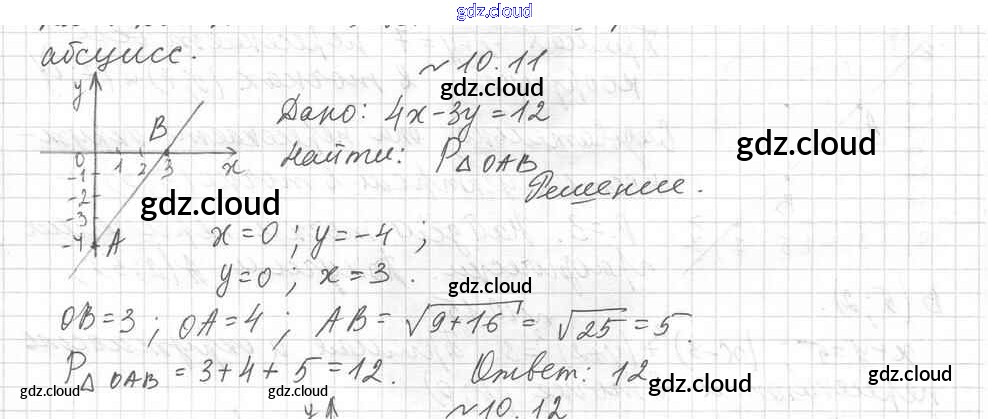 gdz.cloud
абсцисс.
№10.11
gdz.cloud
y
B
0 1 2 3 x
-1
-2
-3
-4 A
Дано: 4x-3y=12
gdz.cloud
Найти: P△OAB
Решение.
gdz.cloud
x=0; y=-4;
y=0; x=3.
gdz.cloud
OB=3; OA=4; AB=√9+16=√25=5.
P△OAB=3+4+5=12. Ответ: 12
gdz.cloud
gdz.cloud
gdz.cloud
gdz.cloud
y
№10.12